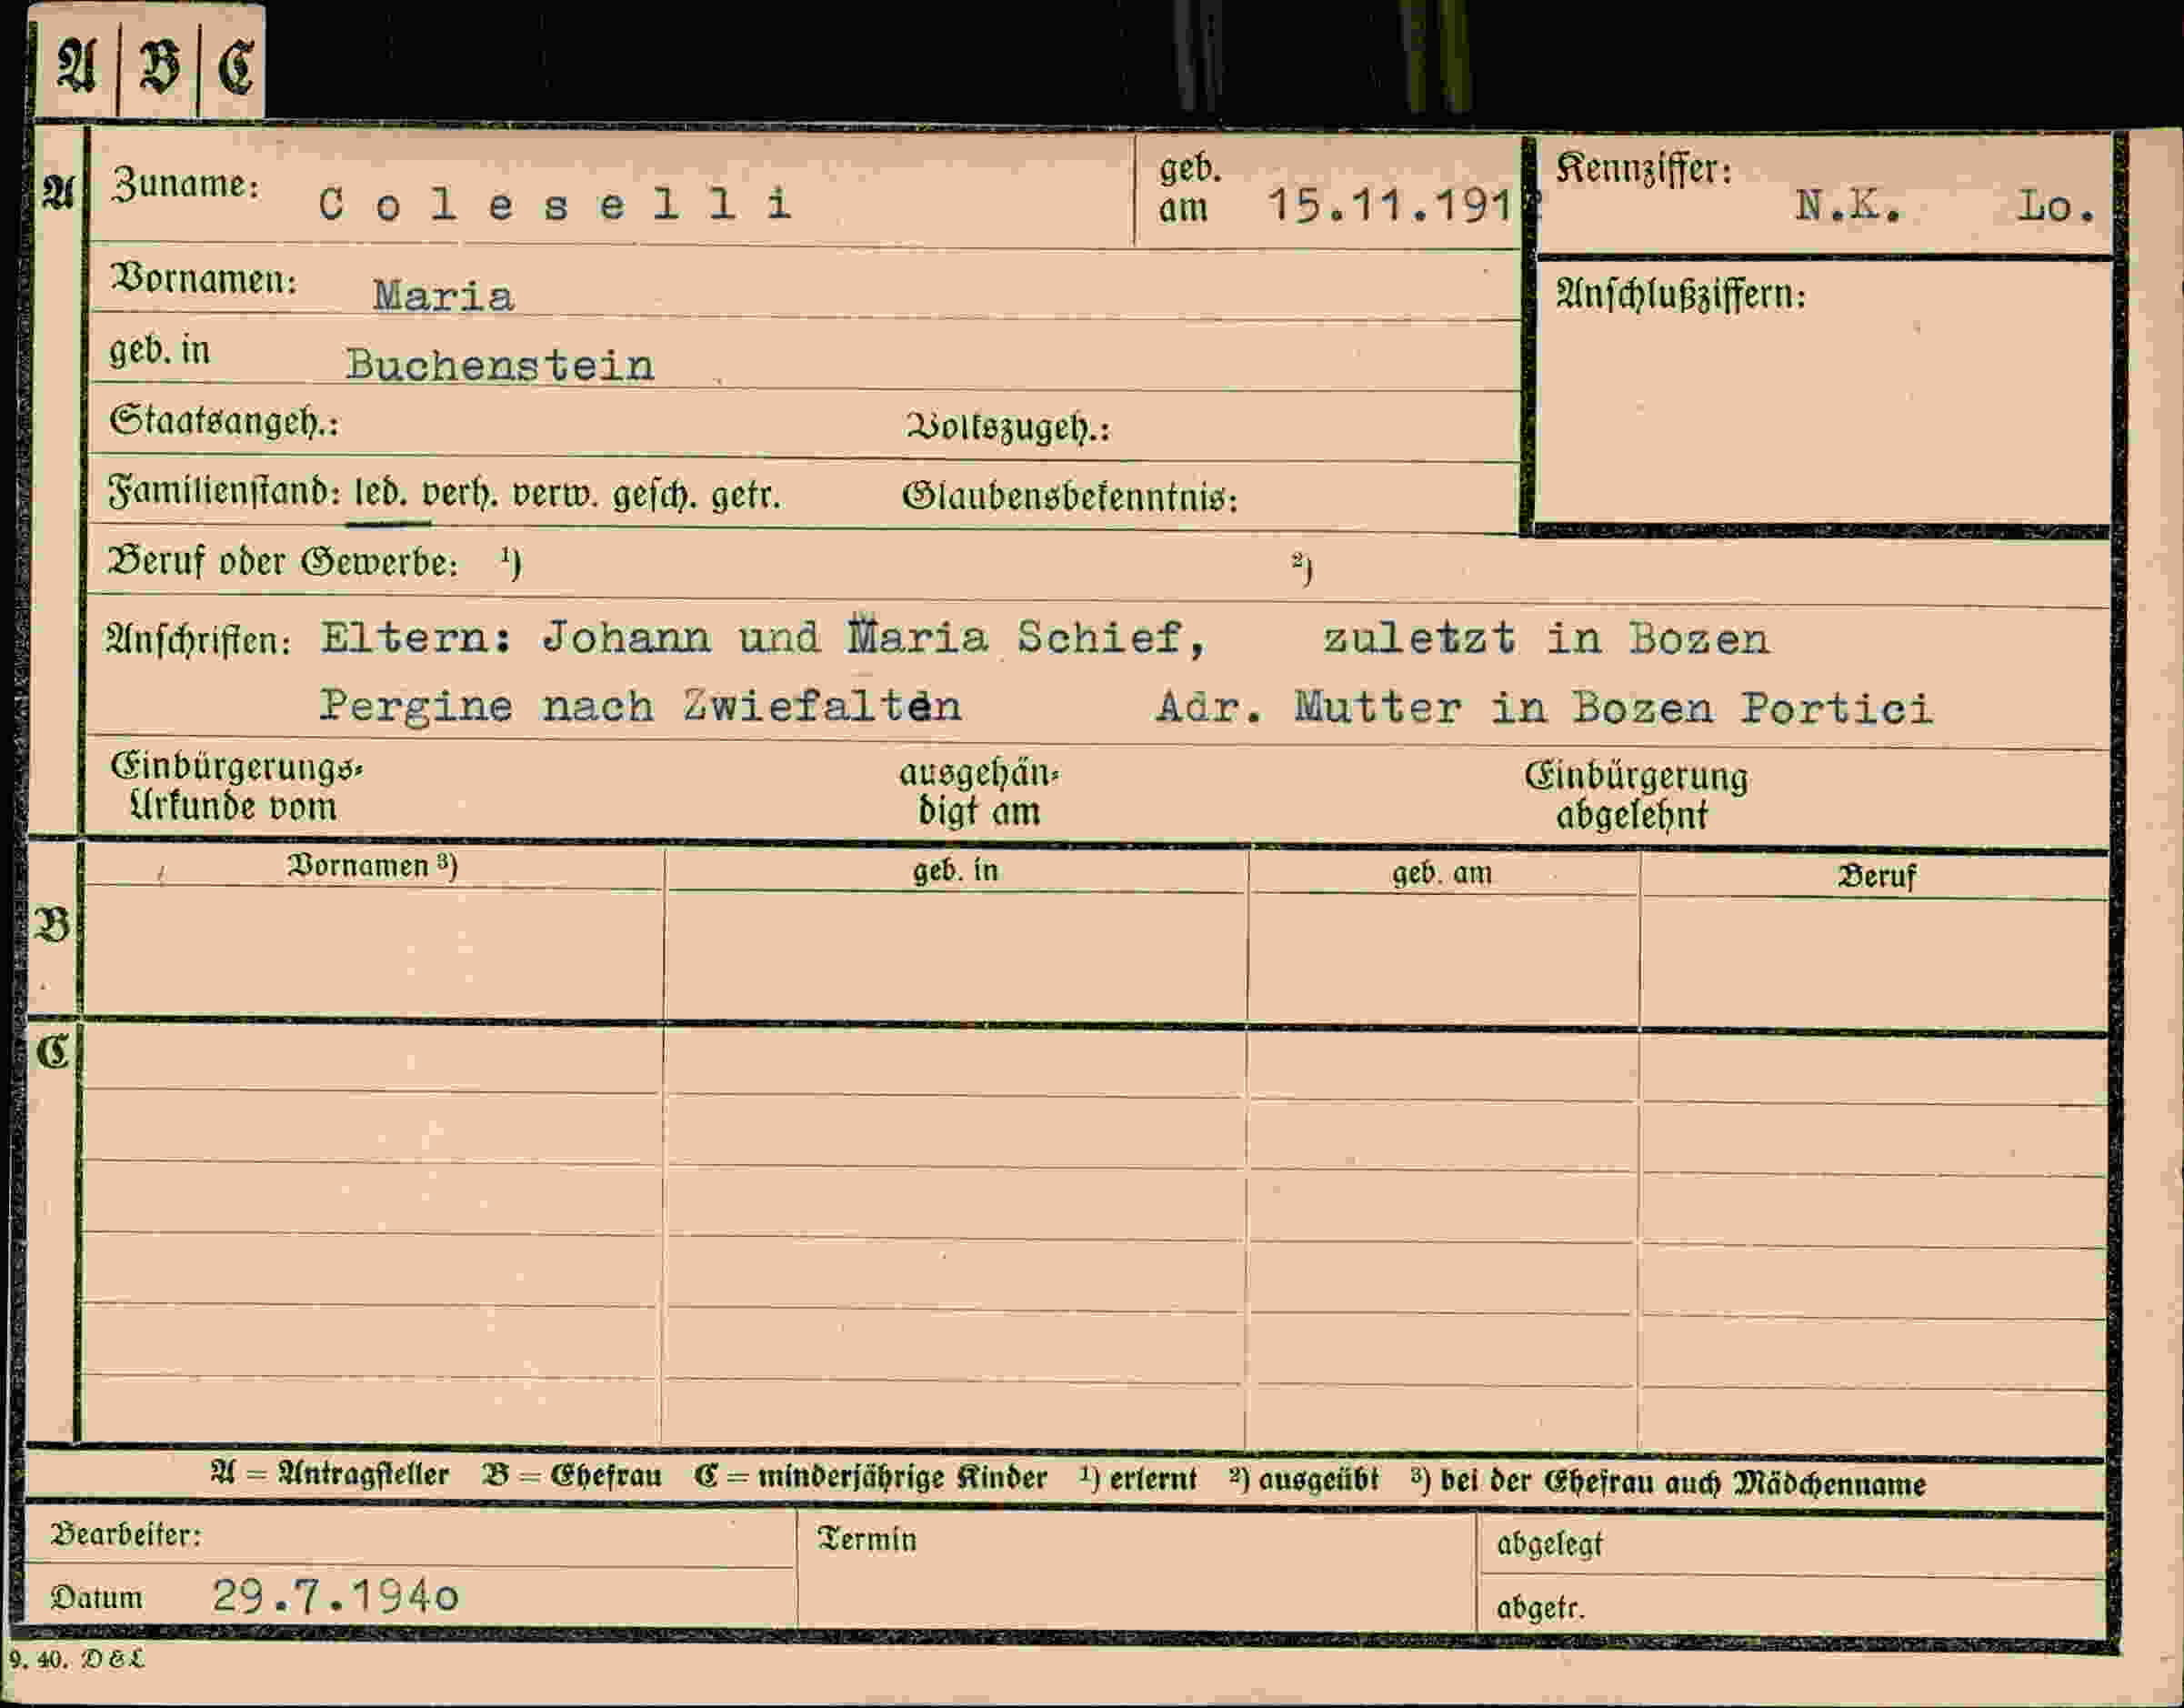 A B C
A Zuname: Coleselli geb. am 15.11.191 Kennziffer: N.K. Lo.
Vornamen: Maria Anschlußziffern:
geb. in Buchenstein
Staatsangeh.: Volkszugeh.:
Familienstand: led. verh. verw. gesch. getr. Glaubensbekenntnis:
Beruf oder Gewerbe: ¹) ²)
Anschriften: Eltern: Johann und Maria Schief, zuletzt in Bozen
Pergine nach Zwiefalten Adr. Mutter in Bozen Portici
Einbürgerungs- ausgehän- Einbürgerung
Urkunde vom digt am abgelehnt
Vornamen ³) geb. in geb. am Beruf
B
C
A = Antragsteller B = Ehefrau C = minderjährige Kinder ¹) erlernt ²) ausgeübt ³) bei der Ehefrau auch Mädchenname
Bearbeiter: Termin abgelegt
Datum 29.7.194o abgetr.
9. 40. D & L